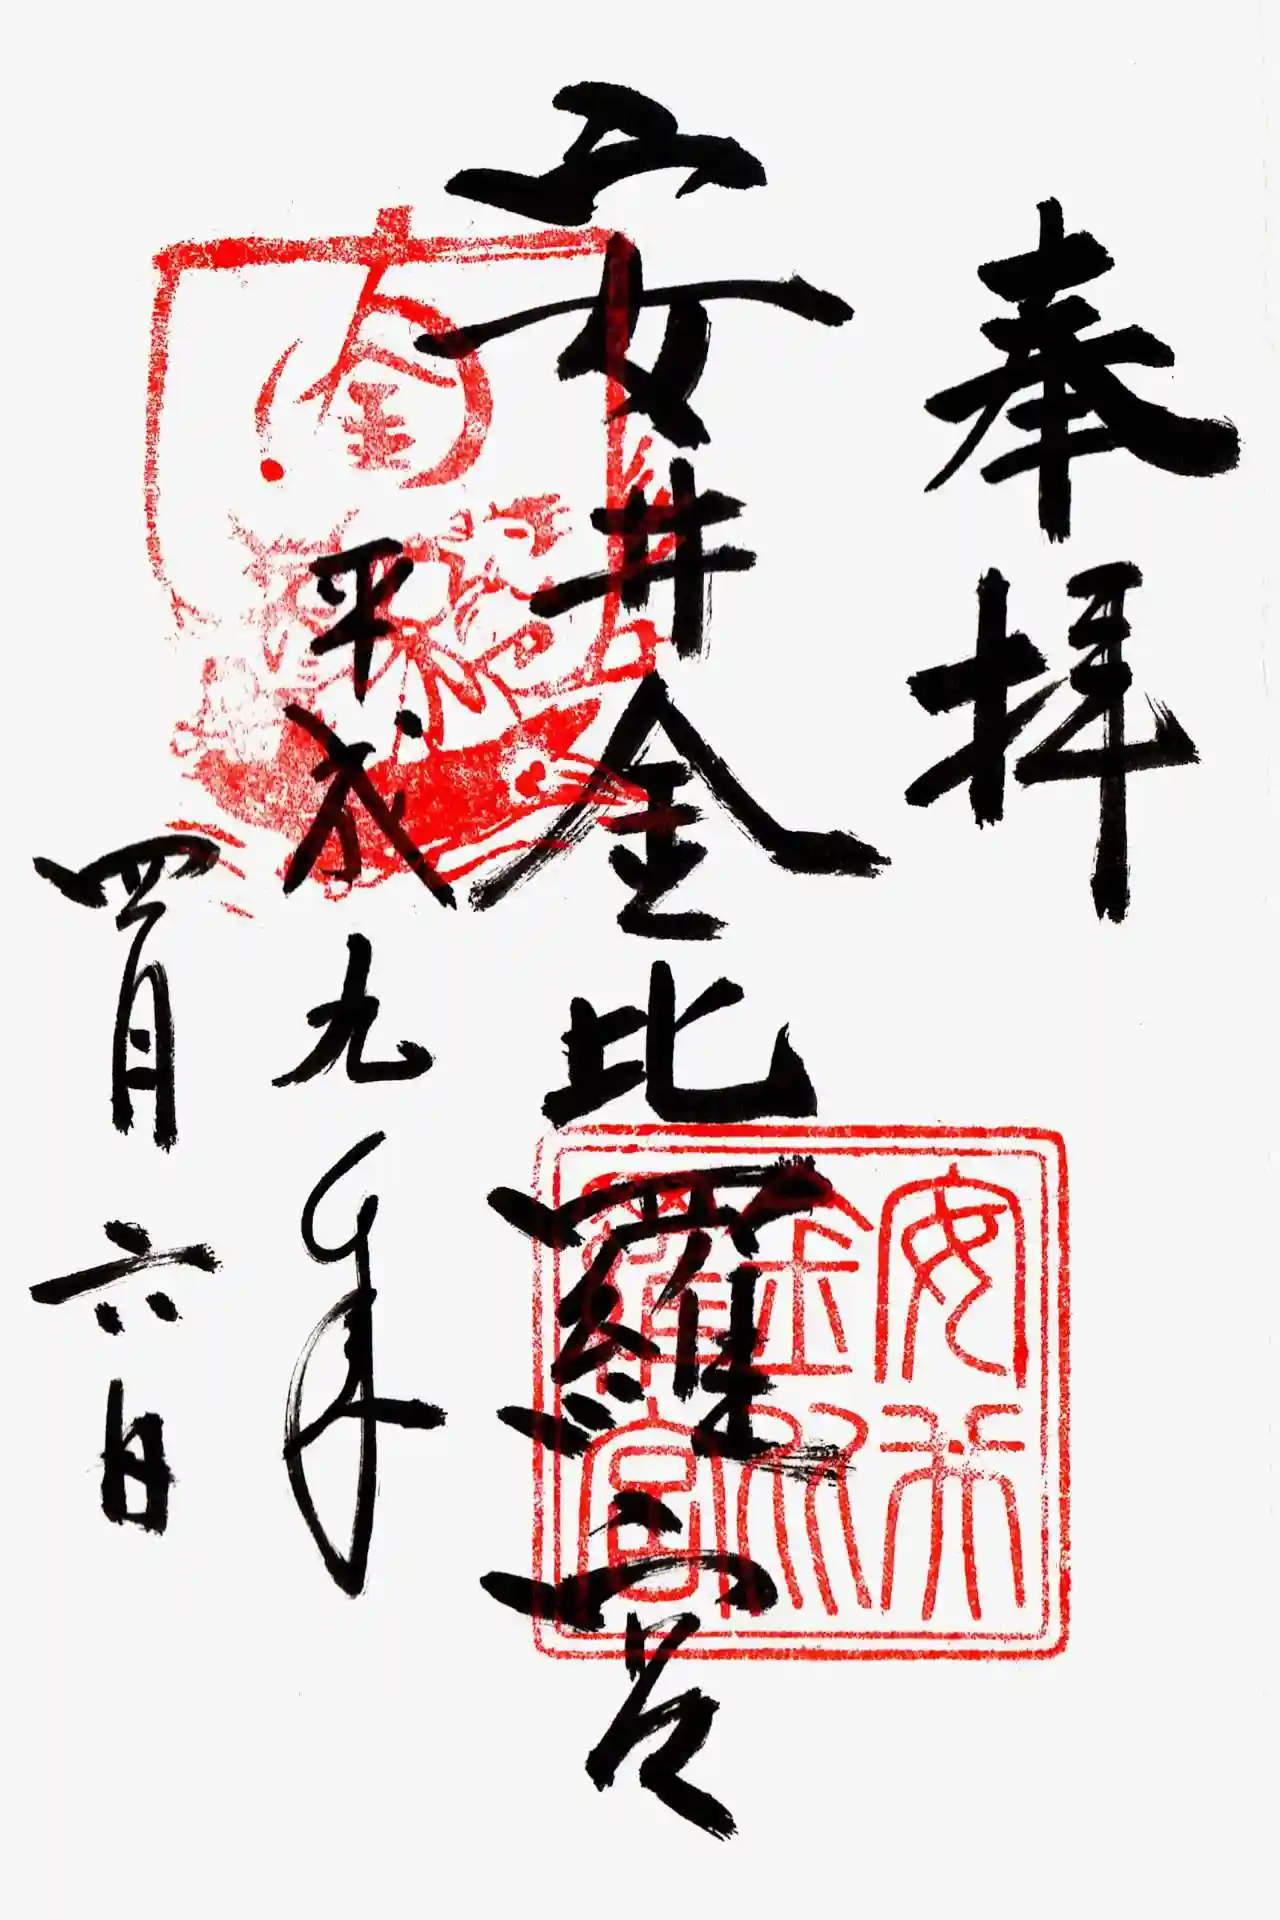 奉拝
安井金比羅宮
平成九年
四月六日
金
安井
金比
羅宮